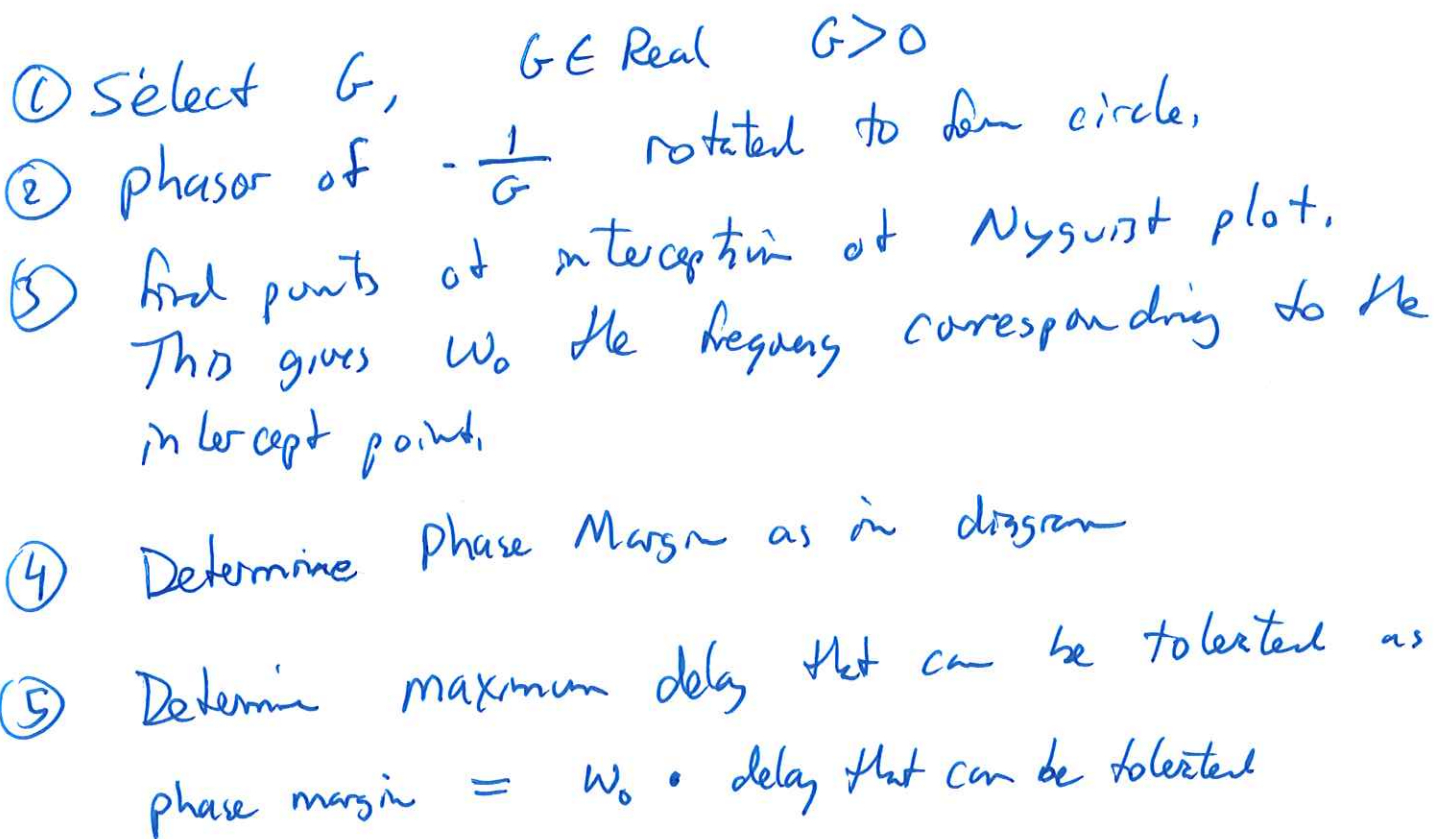 ① Select G, G ∈ Real G>0
② phasor of - 1/G rotated to form circle,
③ find points of interception of Nyquist plot.
This gives ω₀ the frequency corresponding to the
intercept point,
④ Determine Phase Margin as in diagram
⑤ Determine maximum delay that can be tolerated as
phase margin = ω₀ • delay that can be tolerated